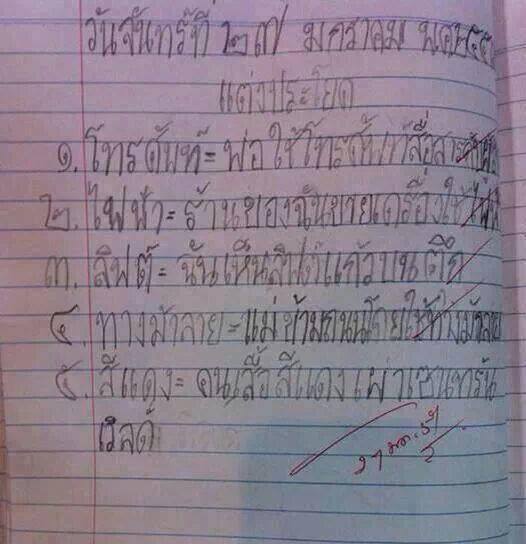 วันจันทร์ที่ ๒๗ มกราคม พ.ศ.๒๕๕๗
แต่งประโยค
๑. โทรศัพท์ = พ่อใช้โทรศัพท์สื่อสาร
๒. ไฟฟ้า = ร้านของฉันขายเครื่องใช้ไฟฟ้า
๓. ลิฟต์ = ฉันเห็นลิฟต์แก้วบนตึก
๔. ทางม้าลาย = แม่ข้ามถนนโดยใช้ทางม้าลาย
๕. สีแดง = คนเสื้อสีแดงเผาเซนทรัน
เวิลด์
๒๗ ม.ค. ๕๗